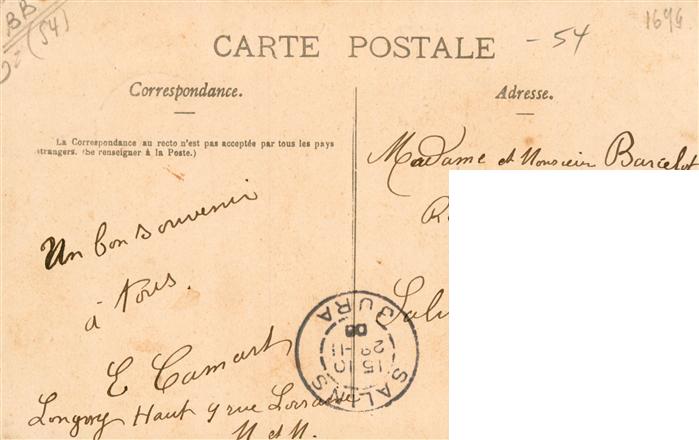 BB
(54)
CARTE POSTALE
- 54
Correspondance.
La Correspondance au recto n'est pas acceptée par tous les pays
étrangers. (Se renseigner à la Poste.)
Un bon souvenir
à tous.
E Camart
Longwy Haut 9 rue Lorraine
M et M.
Adresse.
Madame et Monsieur Barcelot
SALINS
JURA
15 10
29-11
08